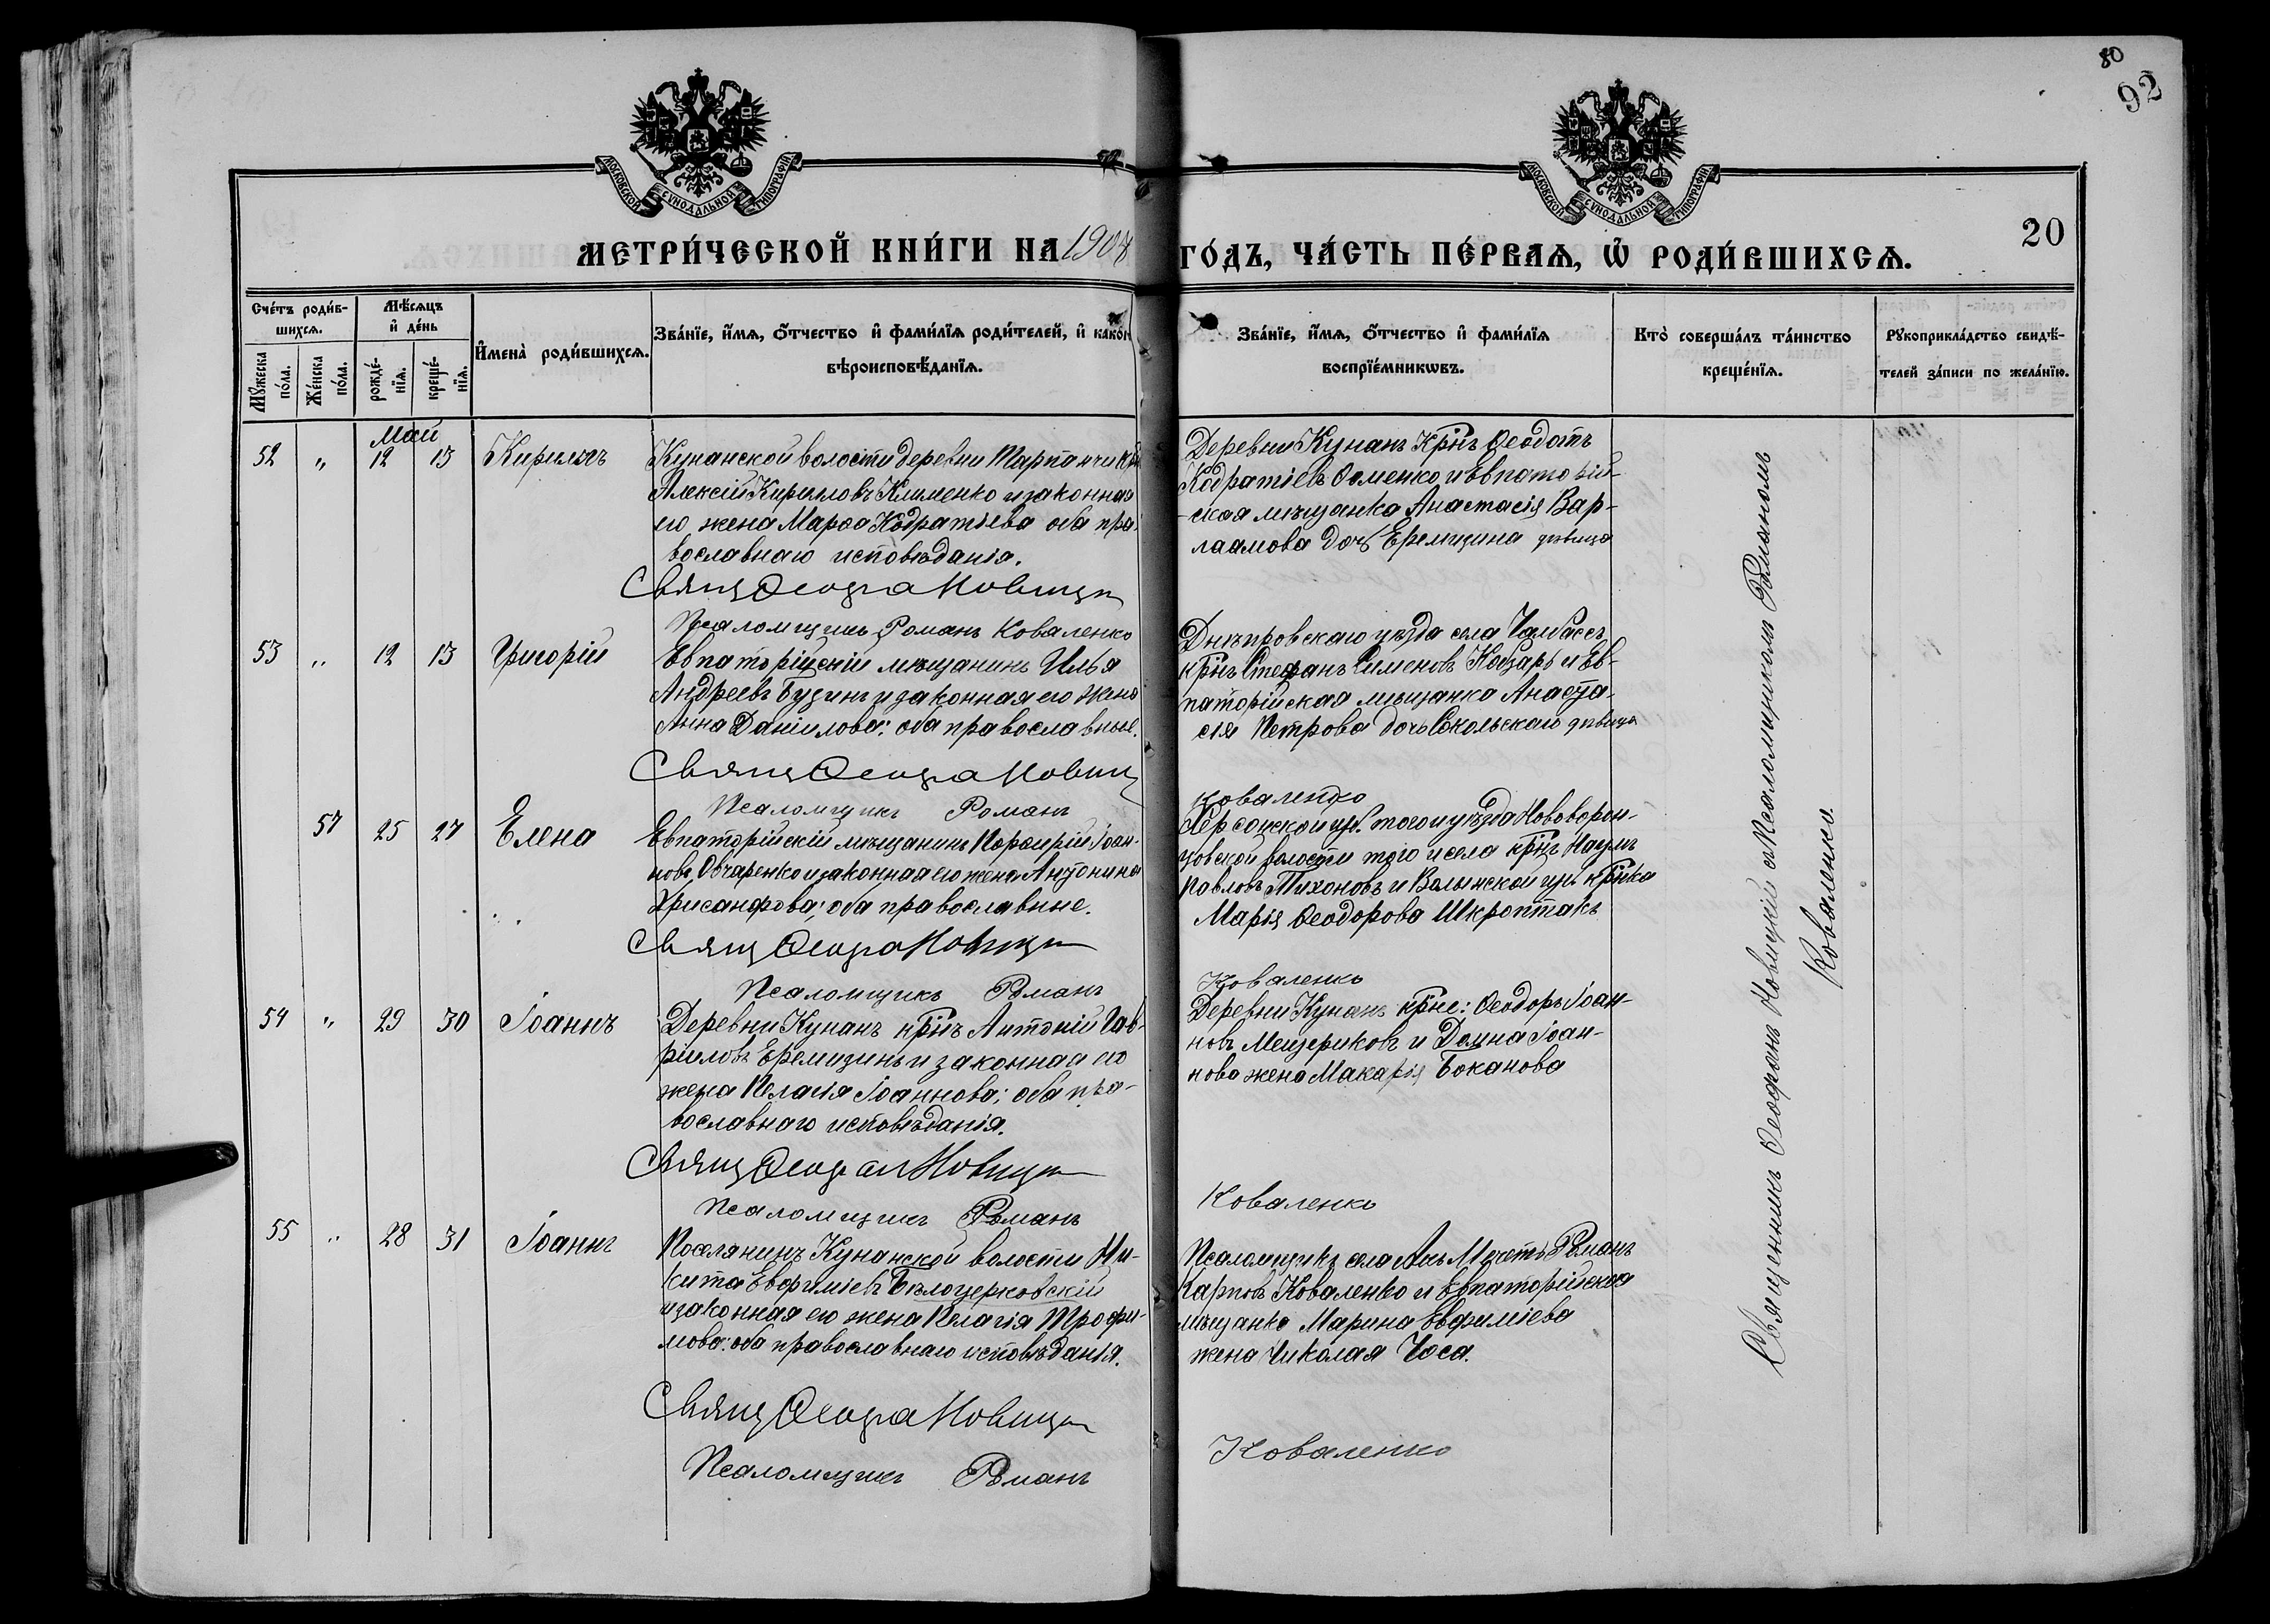 80
92
МОСКОВСКОЙ СѴНОДАЛЬНОЙ ТИПОГРАФІИ
МОСКОВСКОЙ СѴНОДАЛЬНОЙ ТИПОГРАФІИ
20
МЕТРИ́ЧЕСКОЙ КНИ́ГИ НА 1904 ГО́ДЪ, ЧА́СТЬ ПЕ́РВАѦ, Ѡ҆ РОДИ́ВШИХСѦ.
Сче́тъ роди́в-
шихсѧ.
Мꙋ́жеска по́ла.
Же́нска по́ла.
Мѣ́сѧцъ
и҆ де́нь
рожде́-
нїѧ.
креще́-
нїѧ.
И҆мена̀ роди́вшихсѧ.
Зва́нїе, и҆́мѧ, о҆́тчество и҆ фами́лїѧ роди́телей, и҆ како́гѡ
вѣроисповѣ́данїѧ.
Зва́нїе, и҆́мѧ, о҆́тчество и҆ фами́лїѧ
воспрїе́мникѡвъ.
Кто̀ соверша́лъ та́инство
креще́нїѧ.
Рꙋкоприкла́дство свидѣ́-
телей за́писи по жела́нїю.
Май
52 " 12 13 Кириллъ
Кунанской волости деревни Тарпанчи
Алексій Кирилловъ Клименко и законная
его жена Марѳа Кодратіева оба пра-
вославнаго исповѣданія.
Свящ Ѳеофа Новицк
Псаломщикъ Романъ Коваленко
Деревни Кунанъ Крнъ Ѳеодотъ
Кодратіевъ Ѳоменко и Евпаторій-
-ская мѣщанка Анастасія Вар-
лаамова дочь Еремизина дѣвица
53 " 12 13 Григорій
Евпаторійскій мѣщанинъ Илья
Андреевъ Бузинъ и законная его жена
Анна Даніилова; оба православные.
Свящ Ѳеофа Новиц
Псаломщикъ Романъ Коваленко
Днѣпровскаго уѣзда села Чалбассъ
крнъ Стефанъ Сименовъ Кобзарь и Ев-
паторійская мѣщанка Анаста-
сія Петрова дочь Сокольскаго дѣвица
57 25 27 Елена
Евпаторійскій мѣщанинъ Порфирій Іоан-
новъ Овчаренко и законная его жена Антонина
Хрисанфова; оба православные.
Свящ Ѳеофа Новицк
Псаломщикъ Романъ Коваленко
Херсонской губ. того и уѣзда Нововорон-
цовской волости того и села крнъ Наумъ
Павловъ Тихоновъ и Волынской губ. крнка
Марія Ѳеодорова Шкроптакъ
54 " 29 30 Іоаннъ
Деревни Кунанъ крнъ Антоній Гав-
ріиловъ Еремизинъ и законная его
жена Пелагія Іоаннова; оба пра-
вославнаго исповѣданія.
Свящ Ѳеофан Новицк
Псаломщикъ Романъ Коваленко
Деревни Кунанъ крне: Ѳеодоръ Іоан-
новъ Мещериковъ и Домна Іоан-
нова жена Макарія Боканова
55 " 28 31 Іоаннъ
Поселянинъ Кунанской волости Ни-
кита Евфиміевъ Бѣлоцерковскій
и законная его жена Пелагія Трофи-
мова: оба православнаго исповѣданія.
Свящ Ѳеофа Новицк
Псаломщикъ Романъ Коваленко
Псаломщикъ села Акъ Мечеть Романъ
Карповъ Коваленко и Евпаторійская
мѣщанка Марина Евфиміева
жена Николая Чоса.
Священникъ Ѳеофанъ Новицкій съ Псаломщикомъ Романомъ
Коваленко